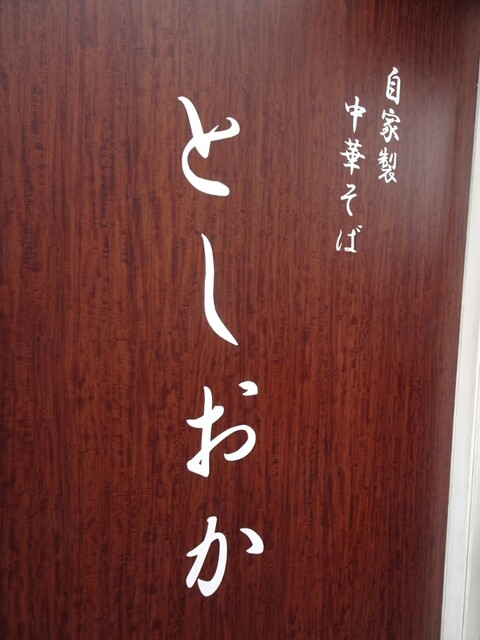 自家製
中華そば
としおか